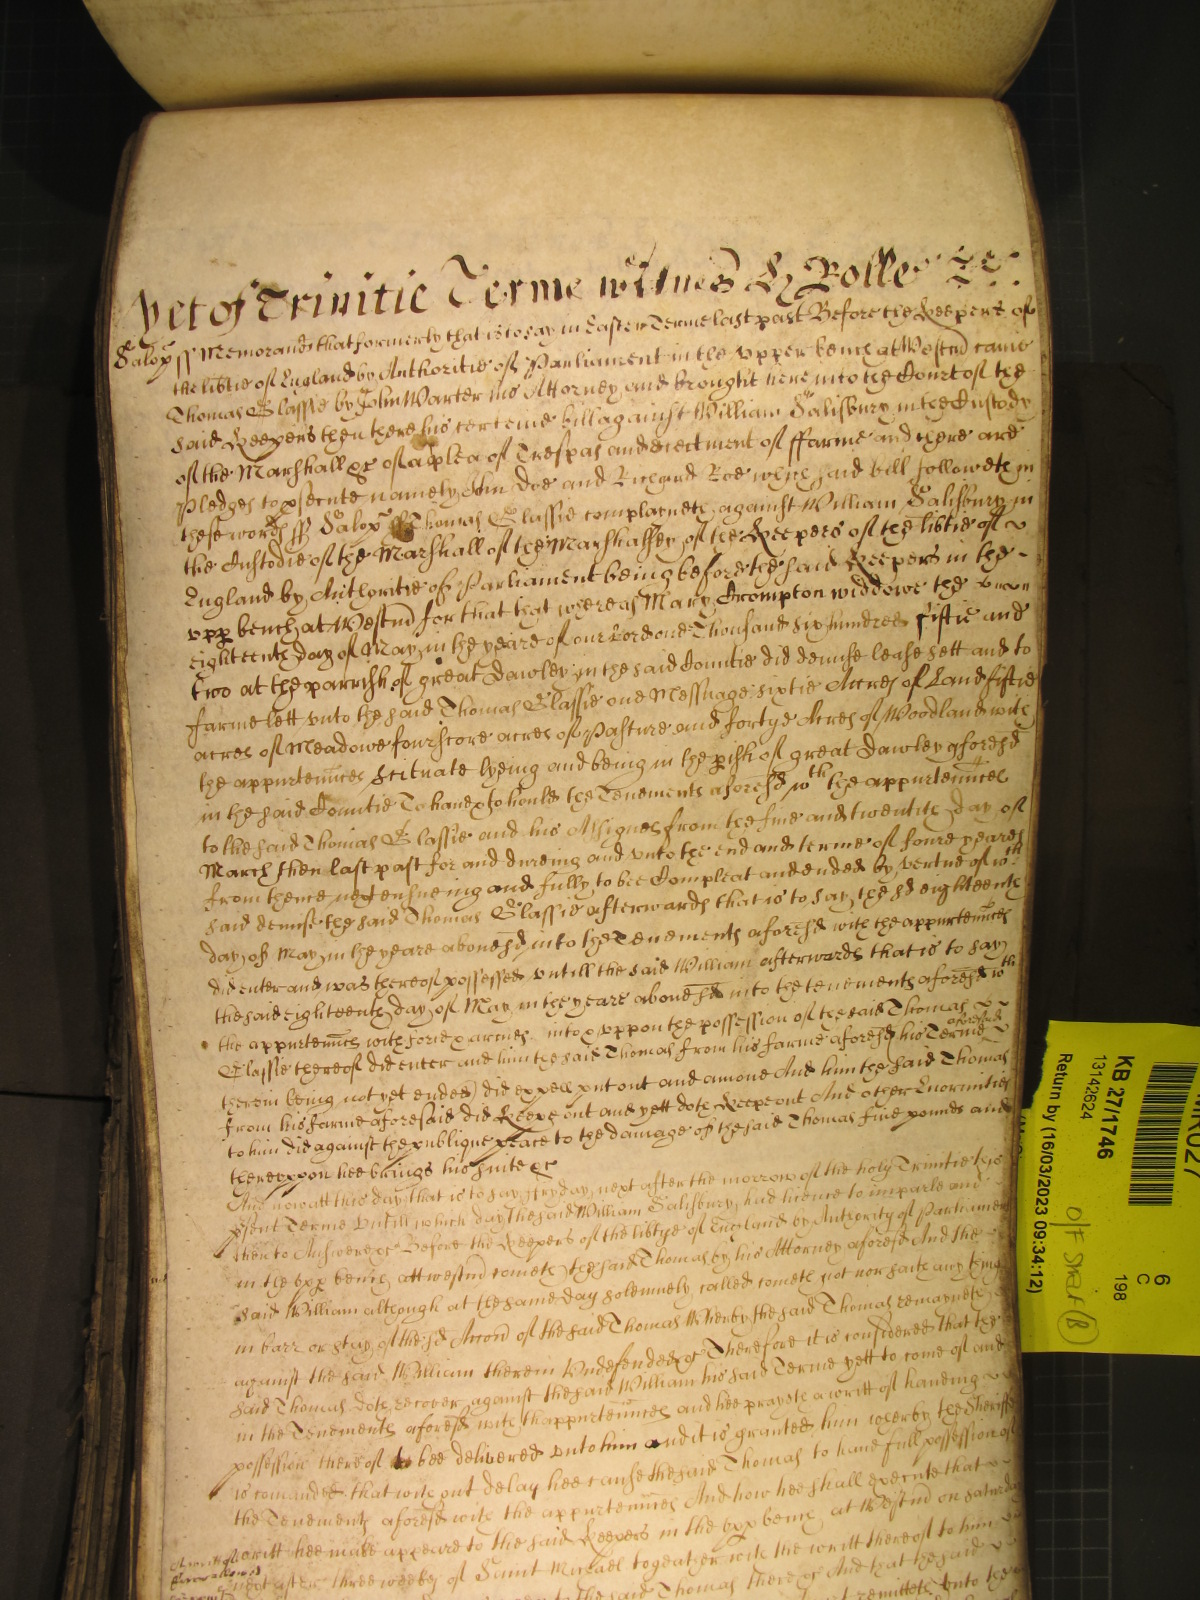 Yet of Trinitie Terme witnes H Rolle
Salop ss Memorand that formerly that is to say in Easter Terme last past Before the Keepers of
the libtie of England by Authoritie of Parliament in the upper bench at Westmd came
Thomas Glassie by John Warter his Attorney and brought here into the Court of the
said Keepers then there his certeine bill against William Salisbury in the Custody
of the Marshall &c of a plea of Trespas and eiectment of ffarme and there are
Pledges to psecute namely John Doe and Richard Roe which said bill followeth in
these words ss Salop ss Thomas Glassie complayneth against William Salisbury in
the Custodie of the Marshall of the Marshalsey of the Keepers of the libtie of
England by Authoritie of Parliament being before the said Keepers in the
upp bench at Westmd for that that whereas Mary Crompton widdowe the
eighteenth day of May in the yeare of our Lord one Thousand six hundred fiftie and
two at the parrish of great Dawley in the said Countie did demise lease sett and to
farme lett unto the said Thomas Glassie one Messuage sixtie Acres of Land fiftie
acres of Meadowe fourscore acres of Pasture and fortye Acres of Woodland with
the appurtennces Scituate lyeing and being in the pish of great Dawley aforesd
in the said Countie To have & to hould the Tenements aforesd wth the appurtennces
to the said Thomas Glassie and his Assignes from the five and twentith day of
March then last past for and dureing and unto the end and terme of foure yeares
from thence next ensueing and fully to bee Compleat and ended by vertue of wch
said demise the said Thomas Glassie afterwards that is to say the sd eighteenth
day of May in the yeare abovesd into the Tenements aforesd with the appurtennces
did enter and was thereof possessed untill the said William afterwards that is to say
the said eighteenth day of May in the yeare abovesd into the tenements aforesd wth
the appurtennces with force & armes into & uppon the possession of the said Thomas
Glassie thereof did enter and him the said Thomas from his farme aforesd (his Terme aforesd
therein being not yet ended) did expell put out and amove And him the said Thomas
from his farme aforesaid did keepe out and yett doth keepe out And other Enormities
to him did against the publique peace to the damage of the said Thomas five pounds and
thereuppon hee brings his suite &c
And now att this day that is to say fryday next after the morrow of the holy Trinitie this
psent Terme Untill which day the said William Salisbury had licence to imparle and
then to Answere &c Before the Keepers of the libtye of England by Authority of Parliament
in the upp bench att westmd cometh the said Thomas by his Attorney aforesd And the
said William although at the same day solemnely called cometh not nor saith any thing
in barr or stay of the sd Accon of the said Thomas Wherby the said Thomas remayneth
against the said William therein Undefended &c Therefore it is considered that the
said Thomas doth recover against the said William his said Terme yett to come of and
in the Tenements aforesd with thappurtennces and hee prayeth a writt of haveing
possession thereof to bee delivered unto him and it is granted him wherby the Sheriffe
is comanded that without delay hee cause the said Thomas to have full possession of
the Tenements aforesd with the appurtennces And how hee shall execute that
writt hee make appeare to the said Keepers in the upp bench at Westmd on saturday
next after three weekes of Saint Michael togeather with the writt thereof to him
the said Thomas there &c And that the said
remitteth unto the
KB 27/1746
13142624
Return by (16/03/2023 09:34:12)
6
C
198